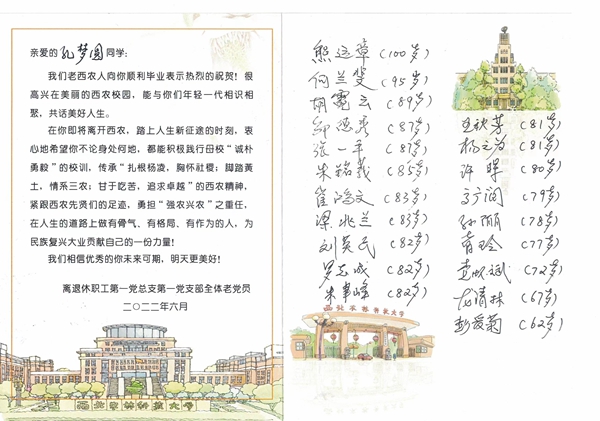 亲爱的孔梦圆同学：
我们老西农人向你顺利毕业表示热烈的祝贺！很
高兴在美丽的西农校园，能与你们年轻一代相识相
聚，共话美好人生。
在你即将离开西农，踏上人生新征途的时刻，衷
心地希望你不论身处何地，都能积极践行母校“诚朴
勇毅”的校训，传承“扎根杨凌，胸怀社稷；脚踏黄
土，情系三农；甘于吃苦，追求卓越”的西农精神，
紧跟西农先贤们的足迹，勇担“强农兴农”之重任，
在人生的道路上做有骨气、有格局、有作为的人，为
民族复兴大业贡献自己的一份力量！
我们相信优秀的你未来可期，明天更美好！
离退休职工第一党总支第一党支部全体老党员
二〇二二年六月
西北农林科技大学
熊运章（100岁）
何兰斐（95岁）
胡霓云（89岁）
（87岁）
张一平（87岁）
朱铭莪（85岁）
翟鸿文（83岁）
梁兆兰（83岁）
刘英民（82岁）
罗志成（82岁）
朱事峰（82岁）
西北农林科技大学
王秋芳（81岁）
杨立为（81岁）
许晖（80岁）
（79岁）
孙丽（78岁）
青玲（77岁）
斌（72岁）
龙清林（67岁）
彭爱菊（62岁）